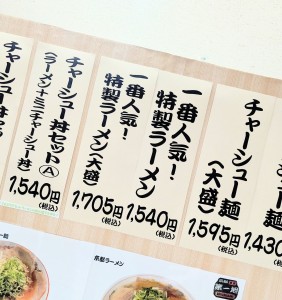 チャーシュー麺
1,430
チャーシュー麺
(大盛)
1,595円
(税込)
一番人気!
特製ラーメン
1,540円
(税込)
一番人気!
特製ラーメン(大盛)
1,705円
(税込)
チャーシュー丼セットⒶ
(ラーメン+ミニチャーシュー丼)
1,540円
(税込)
京都ラーメン
第一旭